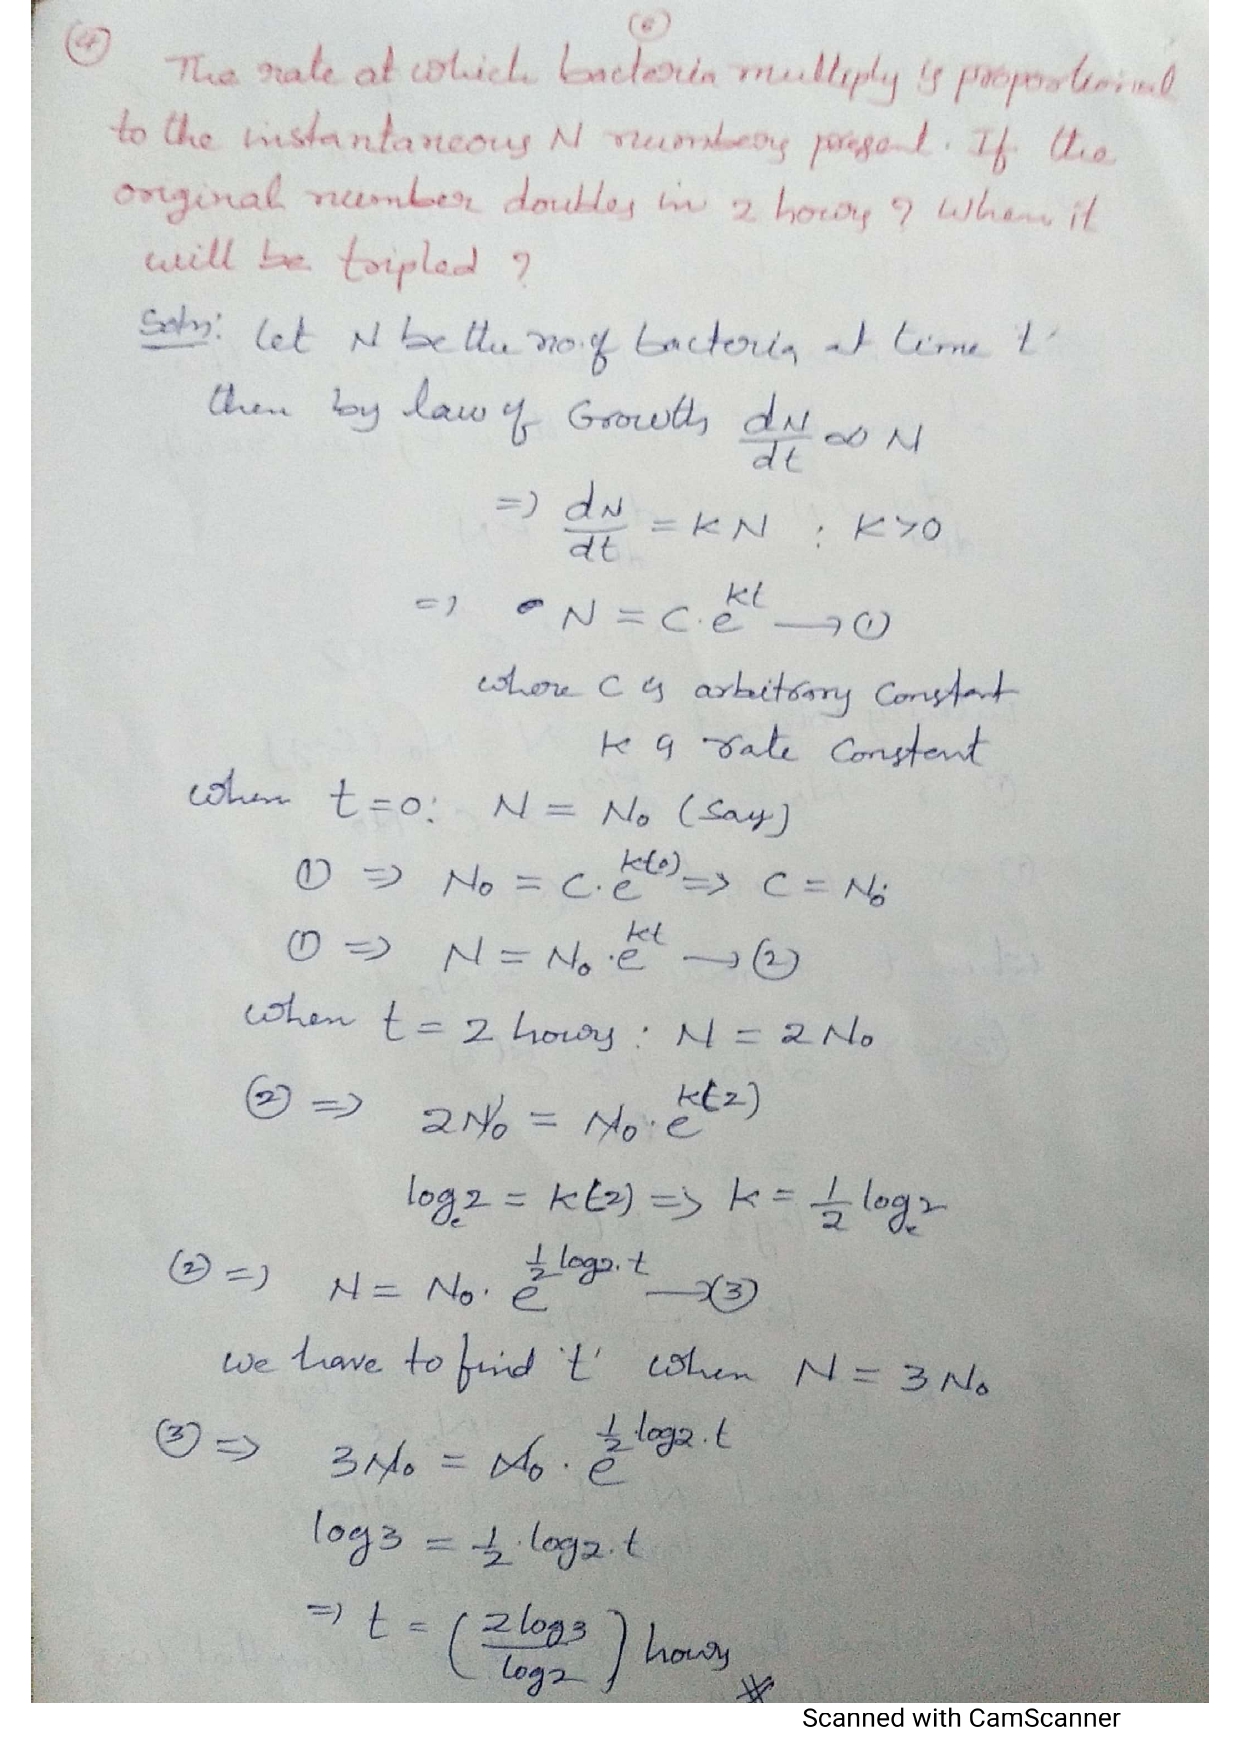 (6)
(4)
The rate at which bacteria multiply is proportional
to the instantaneous N numbers present. If the
original number doubles in 2 hours ? When it
will be tripled ?
Soln: Let N be the no. of bacteria at time 't'
then by law of Growth dN/dt ∝ N
=> dN/dt = KN : K>0
=> N = C.e^kt → (1)
where C is arbitrary Constant
K is rate Constant
When t=0: N = N₀ (say)
(1) => N₀ = C.e^k(0) => C = N₀
(1) => N = N₀.e^kt → (2)
When t = 2 hours : N = 2N₀
(2) => 2N₀ = N₀.e^k(2)
logₑ2 = k(2) => k = 1/2 logₑ2
(2) => N = N₀.e^1/2 log2.t → (3)
we have to find 't' when N = 3N₀
(3) => 3N₀ = N₀.e^1/2.log2.t
log3 = 1/2.log2.t
=> t = (2log3/log2) hours
Scanned with CamScanner